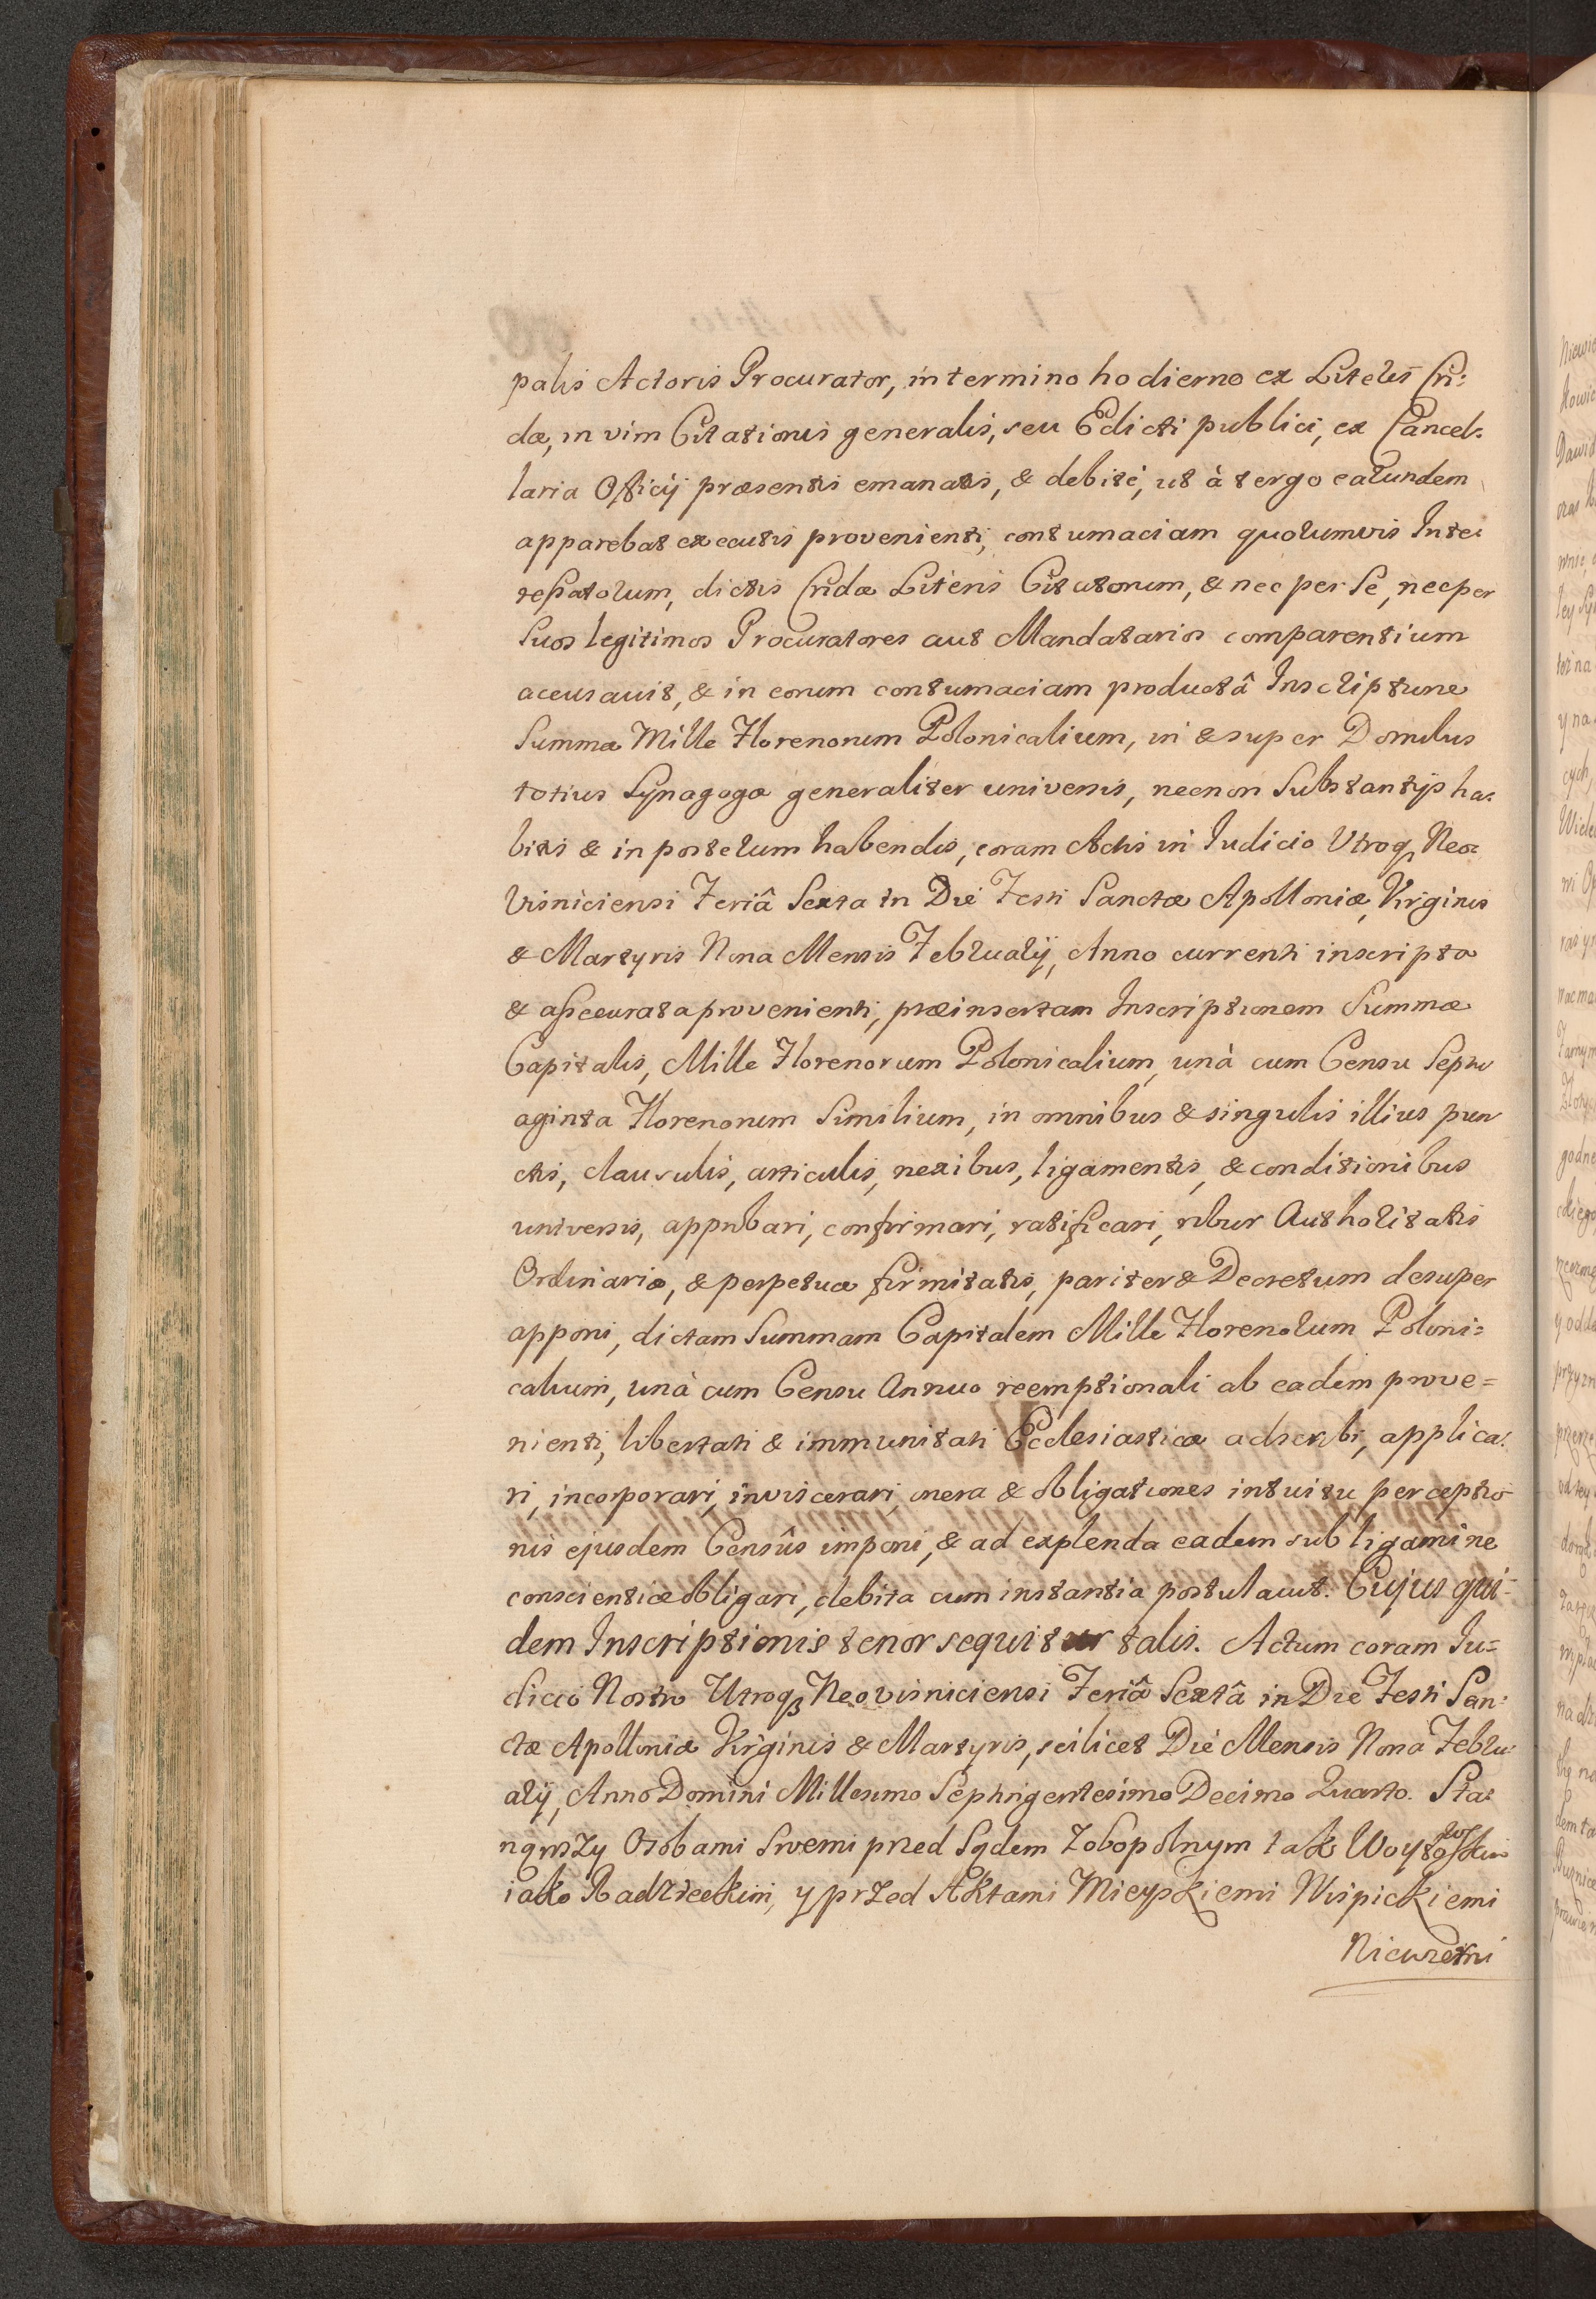 palis Actoris Procurator, in termino hodierno ex Literis Cri:
dæ, in vim Citationis generalis, seu Edicti publici, ex Cancel:
laria Officij præsentis emanatis, & debitè, ut à tergo earundem
apparebat executis provenienti, contumaciam quorumvis Inte:
reßatorum, dictis Cridæ Literis Citatorum, & nec per Se, nec per
Suos legitimos Procuratores aut Mandatarios comparentium
accusavit, & in eorum contumaciam productâ Inscriptione
Summæ Mille Florenorum Polonicalium, in & super Domibus
totius Synagogæ generaliter universis, necnon Substantijs ha:
bitis & in posterum habendis, coram Actis in Iudicio Utroq₃ Neo:
Visniciensi Feriâ Sexta in Die Festi Sanctæ Apolloniæ, Virginis
& Martyris Nona Mensis Februarij, Anno currenti inscripta
& aßecurata provenienti, præinsertam Inscriptionem Summæ
Capitalis, Mille Florenorum Polonicalium, unà cum Censu Septu
aginta Florenorum Similium, in omnibus & singulis illius pun
ctis, clausulis, articulis, nexibus, ligamentis, & conditionibus
universis, approbari, confirmari, ratificari, robur Authoritatis
Ordinariæ, & perpetuæ firmitatis, pariter & Decretum desuper
apponi, dictam Summam Capitalem Mille Florenorum Poloni=
calium, unà cum Censu Annuo reemptionali ab eadem prove=
nienti, libertati & immunitati Ecclesiasticæ adscribi, applica:
ri, incorporari, inviscerari, onera & obligationes intuitu perceptio
nis ejusdem Censûs imponi, & ad explenda eadem sub ligamine
conscientiæ obligari, debita cum instantia postulavit. Cujus qui=
dem Inscriptionis tenor sequitur talis. Actum coram Iu=
dicio Nostro Utroq₃ Neovisniciensi Feriâ Sextâ in Die Festi San:
ctæ Apolloniæ Virginis & Martyris, scilicet Die Mensis Nona Febru:
arij, Anno Domini Millesimo Septingentesimo Decimo Quarto. Sta:
nąwszy Osobami Swemi przed Sądem Zobopolnym tak Woytowskim
iako Radzieckim, y przed Aktami Mieyskiemi Wiśnickiemi
Niewierni